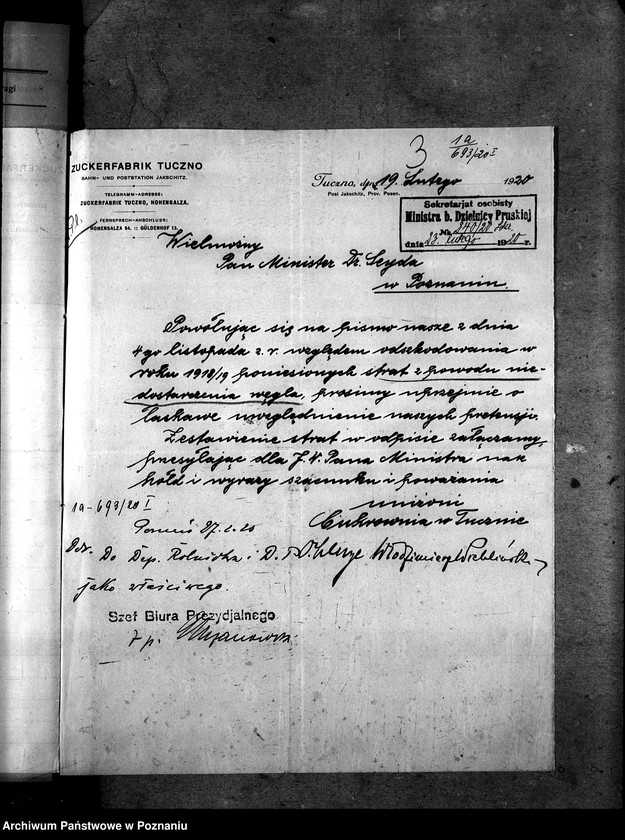 3 1a
693/20 I
ZUCKERFABRIK TUCZNO
BAHN- UND POSTSTATION JAKSCHITZ.
TELEGRAMM-ADRESSE:
ZUCKERFABRIK TUCZNO, HOHENSALZA.
FERNSPRECH-ANSCHLUSS:
HOHENSALZA 54. :: GÜLDENHOF 13.
Tuczno, dn. 19. Lutego 1920
Post Jakschitz, Prov. Posen.
Sekretarjat osobisty
Ministra b. Dzielnicy Pruskiej
№ 240/20
dnia 23. lutego 1920 r.
Wielmożny
Pan Minister Dr. Seyda
w Poznaniu.
Powołując się na pismo nasze z dnia
4-go listopada z. r. względem odszkodowania w
roku 1918/19 poniesionych strat z powodu nie-
dostarczenia węgla, prosimy uprzejmie o
łaskawe uwzględnienie naszych pretensji.
Zestawienie strat w odpisie załączamy,
przesyłając dla J. W. Pana Ministra nasz
hołd i wyrazy szacunku i poważania
uniżoni
Cukrownia w Tucznie
1a-693/20 I
Poznań 27.2.20
Do Dep. Rolnictwa i D. P.
jako właściwego.
Szef Biura Prezydjalnego
z p.
Archiwum Państwowe w Poznaniu